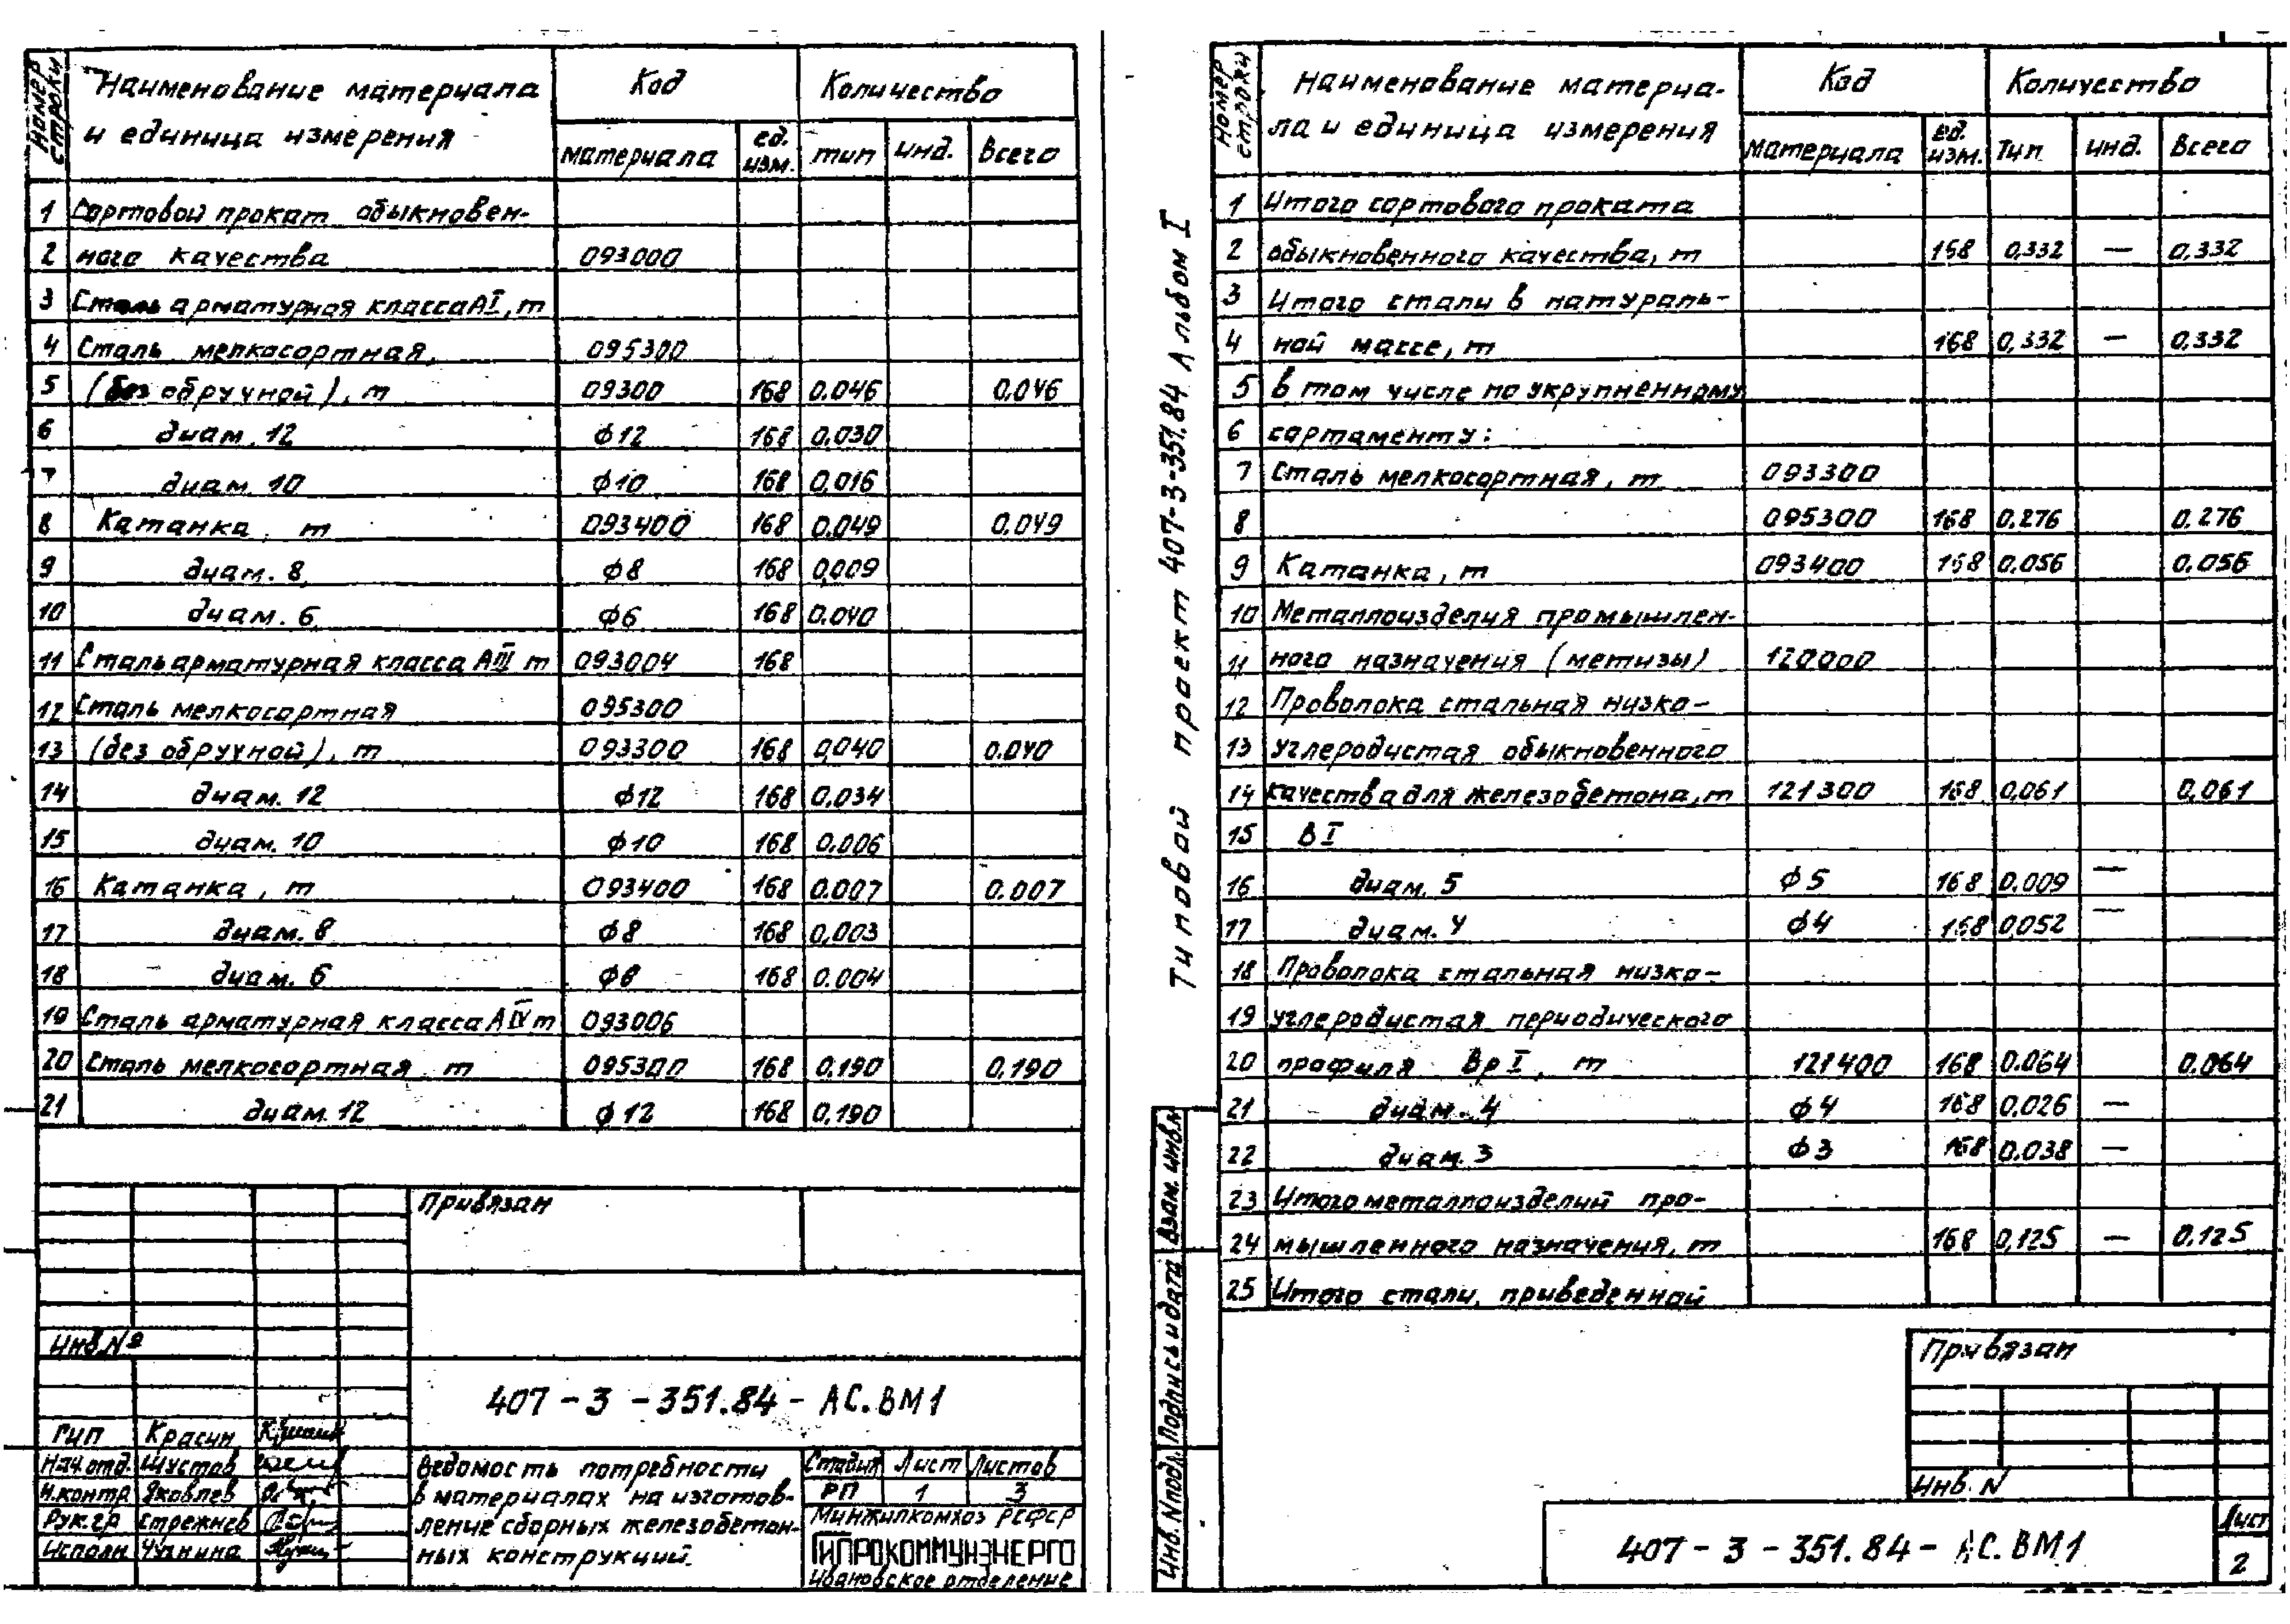 Номер строки
Наименование материала и единица измерения
Код
Количество
материала
ед. изм.
тип
инд.
Всего
1 Сортовой прокат обыкновен-
2 ного качества 093000
3 Сталь арматурная класса АI, т
4 Сталь мелкосортная, 095300
5 (без обручной), т 09300 168 0.046 0.046
6 диам. 12 ф12 168 0.030
7 диам. 10 ф10 168 0,016
8 Катанка, т 093400 168 0.049 0.049
9 диам. 8 ф8 168 0,009
10 диам. 6 ф6 168 0.040
11 Сталь арматурная класса АIII т 093004 168
12 Сталь мелкосортная 095300
13 (без обручной), т 093300 168 0,040 0.040
14 диам. 12 ф12 168 0.034
15 диам. 10 ф10 168 0.006
16 Катанка, т 093400 168 0.007 0.007
17 диам. 8 ф8 168 0,003
18 диам. 6 ф6 168 0.004
19 Сталь арматурная класса АIV т 093006
20 Сталь мелкосортная, т 095300 168 0,190 0,190
21 диам. 12 ф12 168 0,190
Привязан
Инв.№
407-3-351.84-АС.ВМ1
ГИП Красин
Нач.отд. Шустов
Н.контр Яковлев
Рук.гр Стрежнев
Исполн
Ведомость потребности
в материалах на изготов-
ление сборных железобетон-
ных конструкций.
Стадия Лист Листов
РП 1 3
Минжилкомхоз РСФСР
ГИПРОКОММУНЭНЕРГО
Ивановское отделение
Типовой проект 407-3-351.84 Альбом I
Номер строки
Наименование материа-
ла и единица измерения
Код
Количество
материала
ед. изм.
Тип
инд.
Всего
1 Итого сортового проката
2 обыкновенного качества, т 168 0,332 — 0,332
3 Итого стали в натураль-
4 ной массе, т 168 0,332 — 0,332
5 в том числе по укрупненному
6 сортаменту:
7 Сталь мелкосортная, т 093300
8 095300 168 0,276 0,276
9 Катанка, т 093400 168 0.056 0.056
10 Металлоизделия промышлен-
11 ного назначения (метизы) 120000
12 Проволока стальная низко-
13 углеродистая обыкновенного
14 качества для железобетона, т 121300 168 0,061 0,061
15 ВI
16 диам. 5 ф5 168 0.009 —
17 диам. 4 ф4 168 0,052 —
18 Проволока стальная низко-
19 углеродистая периодического
20 профиля ВрI, т 121400 168 0.064 0.064
21 диам. 4 ф4 168 0.026 —
22 диам. 3 ф3 168 0.038 —
23 Итого металлоизделий про-
24 мышленного назначения, т 168 0,125 — 0.125
25 Итого стали, приведенной
Взам. инв.№
Подпись и дата
Инв. № подл.
Привязан
Инв. N
407-3-351.84-АС.ВМ1
Лист
2